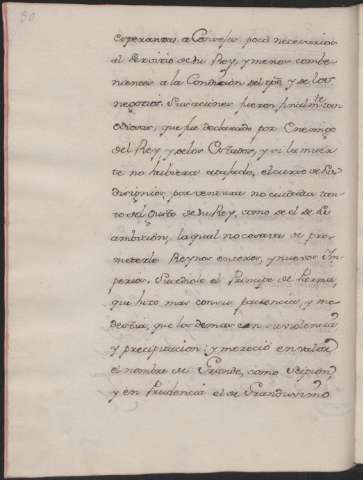 50
esperanzas a Consejos poco necesarios
al Servicio de su Rey, y menos combe-
nientes a la Condicion del tpõ, y de los
negocios. Sus acciones fueron finalm.te tan
odiosas, que fue declarado por Enemigo
del Rey y de los Estados, y si la muer-
te no hubiera atajado, el curso de sus
disignios, por ventura no cuidara tan-
to del Gusto de su Rey, como de el de su
ambicion, la qual no cesava de pro-
meterle Reynos enteros, y nuevos Im-
perios. Sucediole el Principe de Parma,
que hizo mas con su paciencia, y mo-
destia, que los demas con su violencia
y precipitacion; y mereció en valor
el nombre de Grande, como Scipion,
y en Prudencia el de Grandissimo